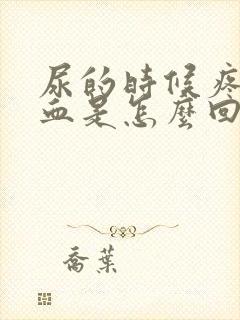 尿的時候疼
血是怎麼回
喬葉